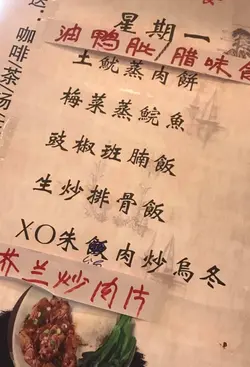 咖啡/茶/汤/
星期一
油鸭肶/腊味
土魷蒸肉餅
梅菜蒸鯇魚
豉椒班腩飯
生炒排骨飯
XO朱肉炒烏冬
芥兰炒肉片